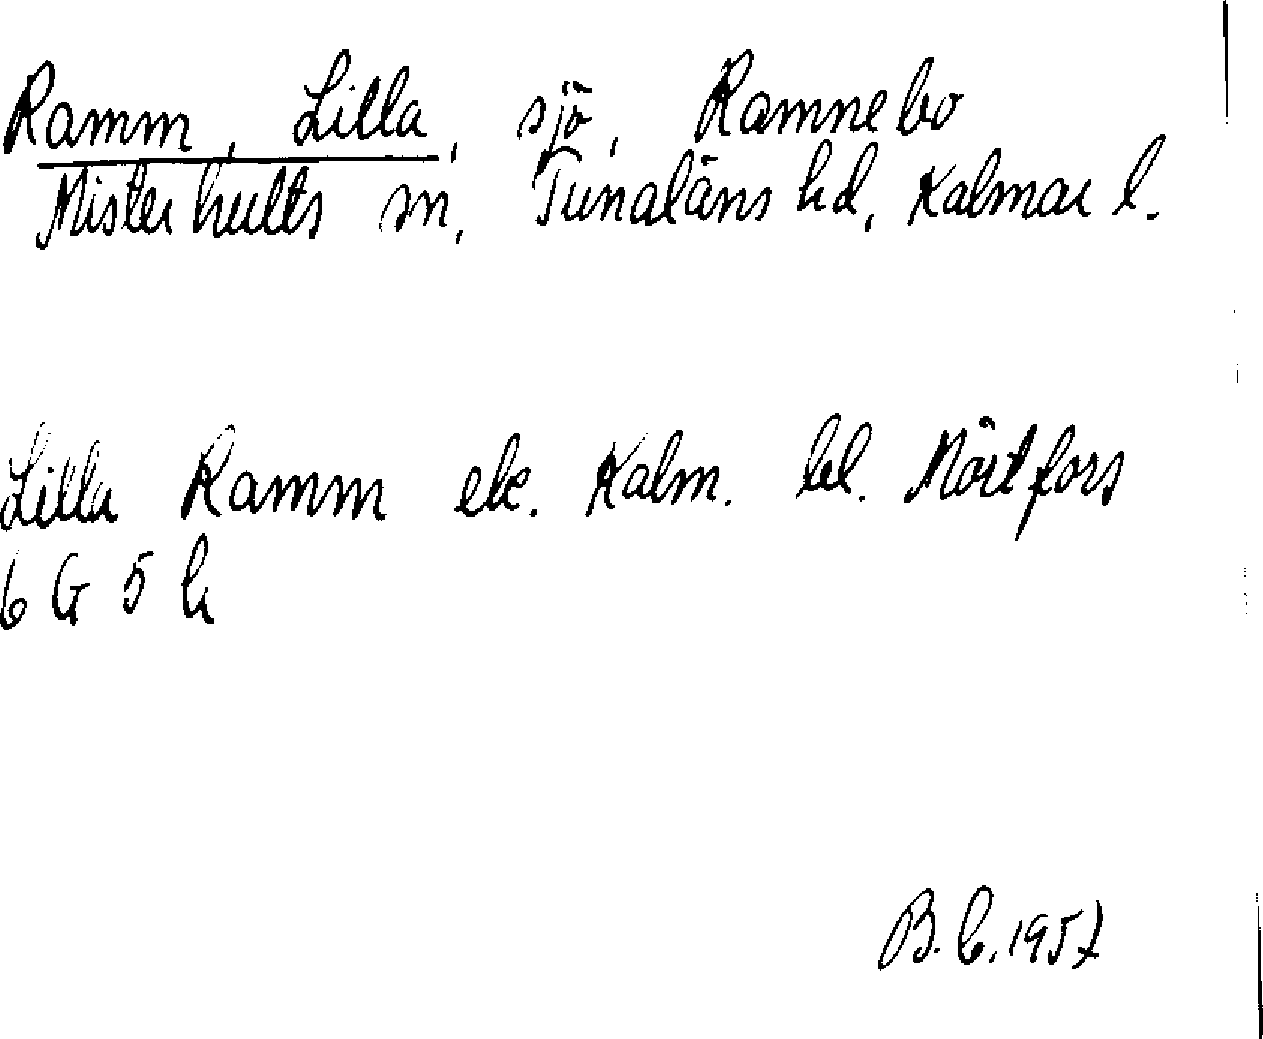 Ramm, Lilla, sjö, Ramnebo
Misterhults sn, Tunaläns hd, Kalmar l.
Lilla Ramm ek. Kalm. bl. Mörtfors
6 G 5 h
B. L. 1957